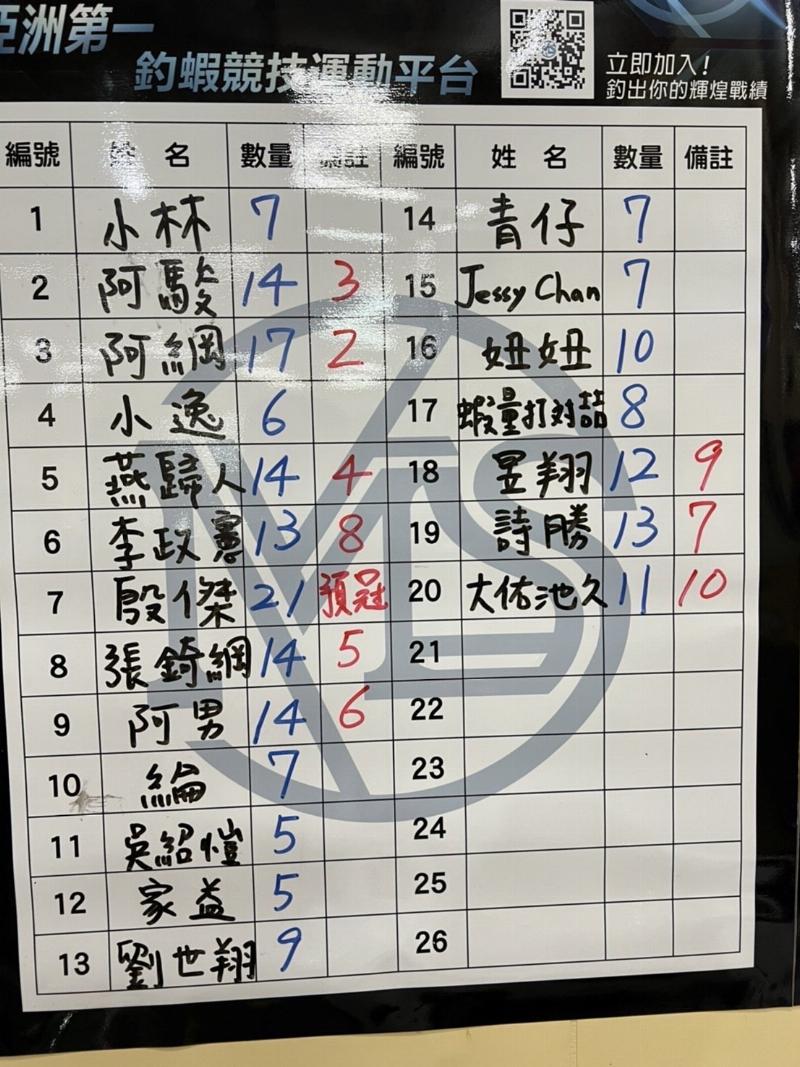 亞洲第一
釣蝦競技運動平台
立即加入!
釣出你的輝煌戰績
編號 姓名 數量 備註 編號 姓名 數量 備註
1 小林 7 14 青仔 7
2 阿駿 14 3 15 Jessy Chan 7
3 阿綱 17 2 16 妞妞 10
4 小逸 6 17 蝦量打对喆 8
5 燕歸人 14 4 18 昱翔 12 9
6 李政憲 13 8 19 詩勝 13 7
7 殷傑 21 預冠 20 大佑池久 11 10
8 張錡網 14 5 21
9 阿男 14 6 22
10 綸 7 23
11 吳紹愷 5 24
12 家益 5 25
13 劉世翔 9 26